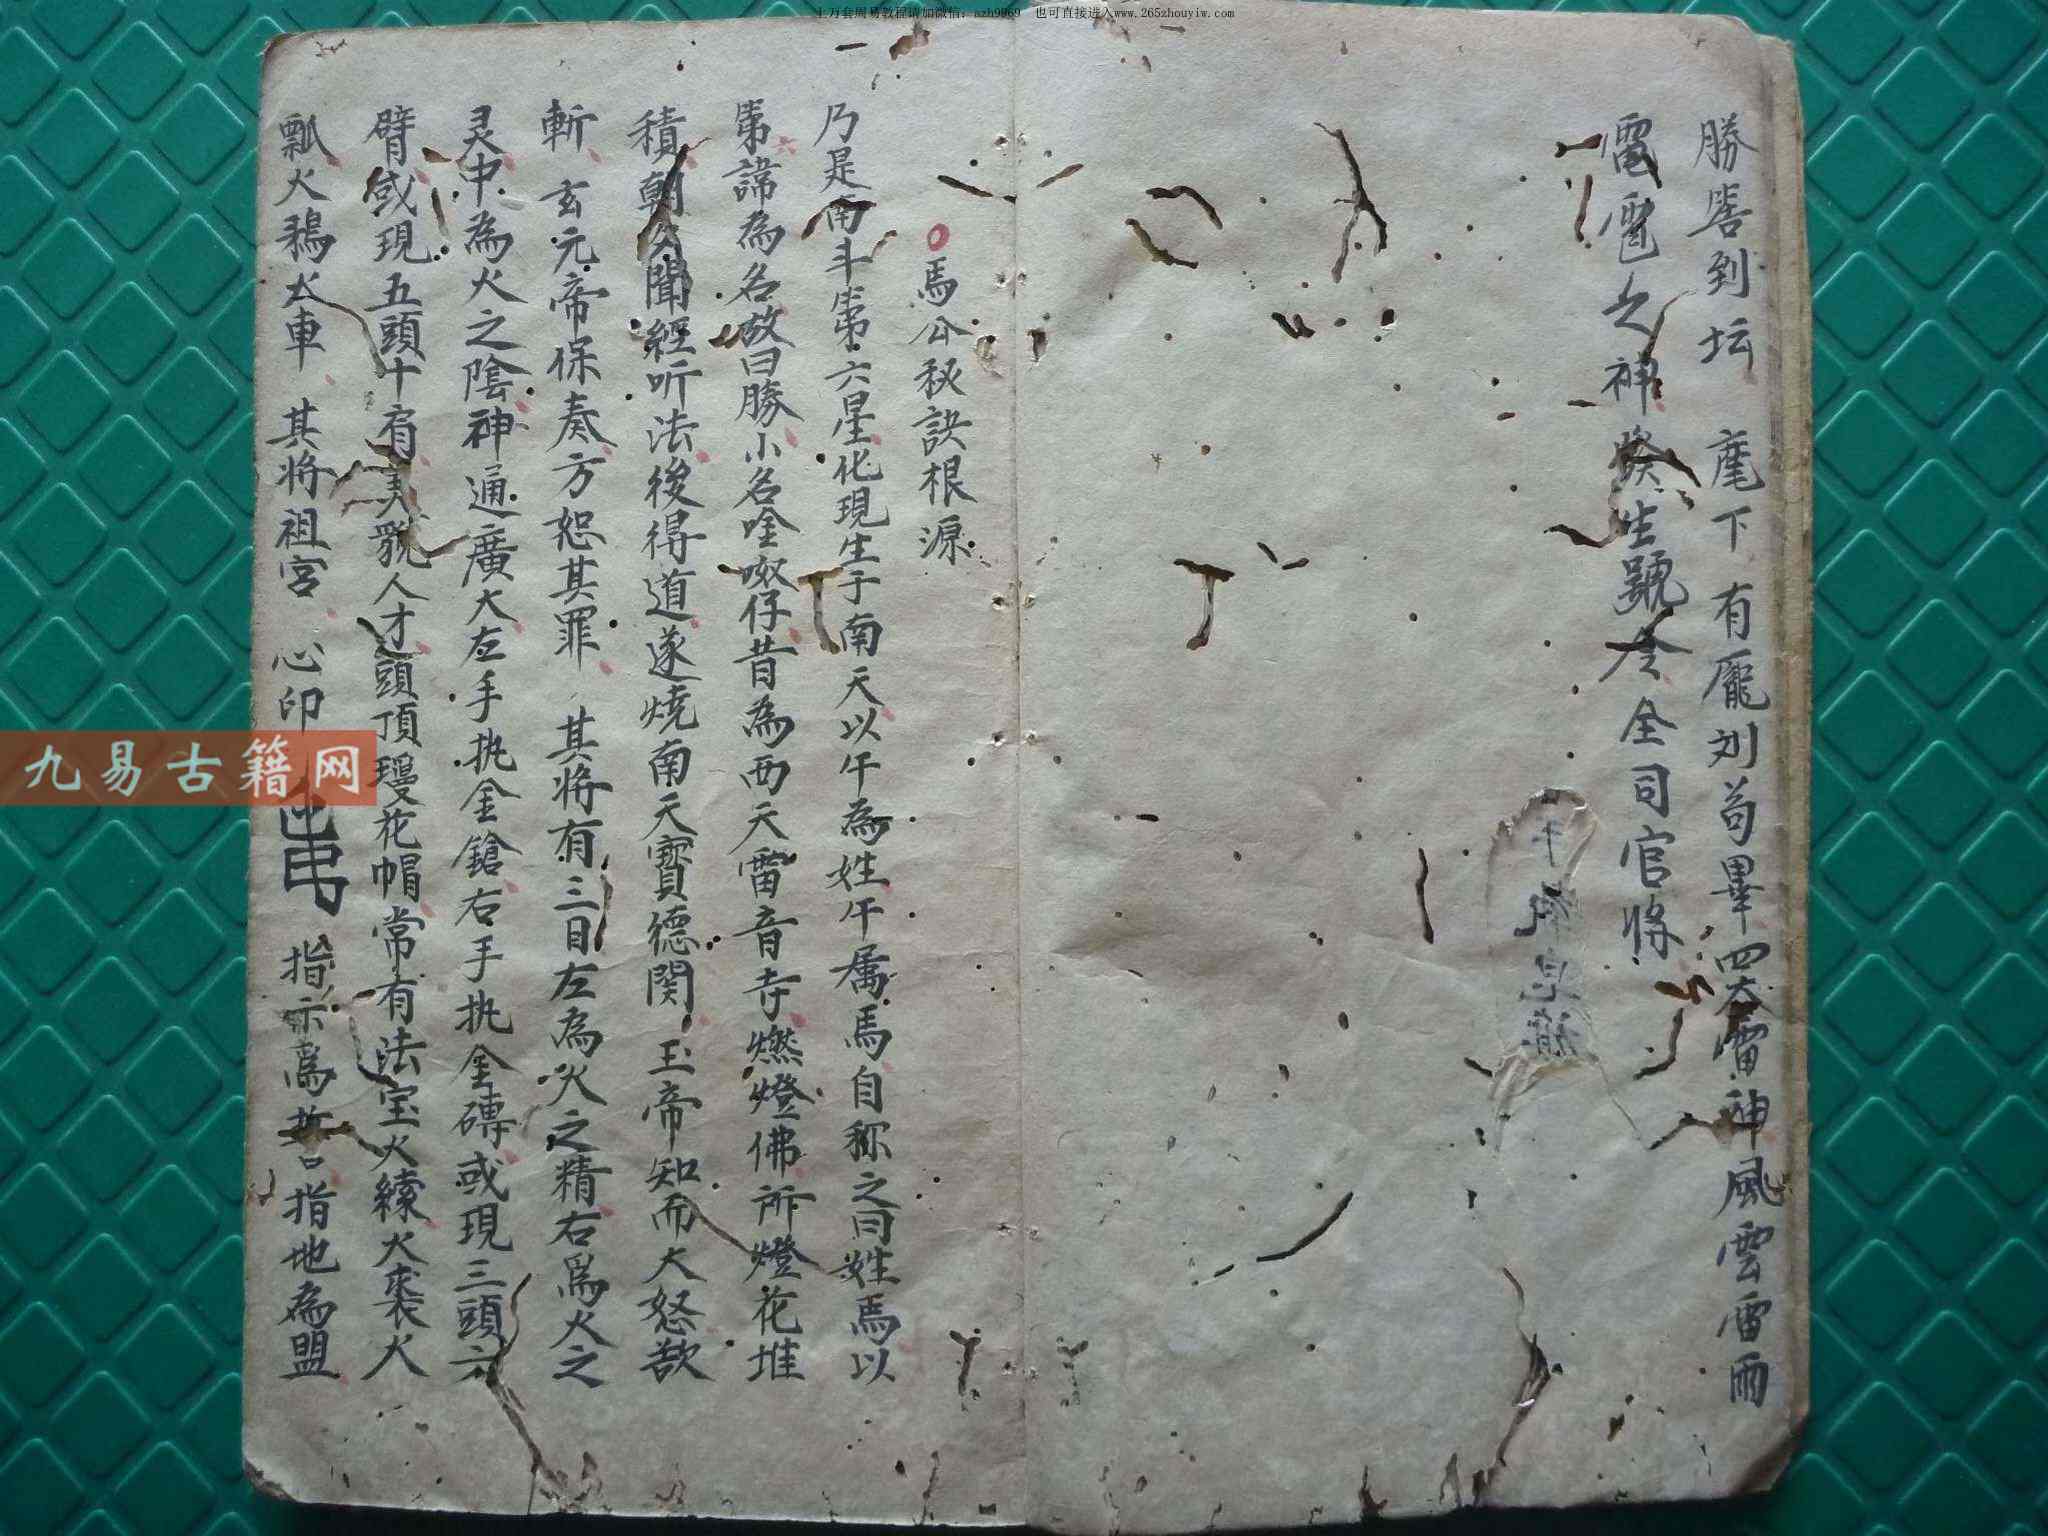 上万套周易教程请加微信：azh9969　也可直接进入www.265zhouyiw.com
勝嗒到坛　麾下有龐刘苟畢四大雷神風雲雷雨
電雹之神　生號令全司官將
馬公秘訣根源
乃是南斗第六星化現生于南天以午為姓午属馬自称之曰姓馬以
第諦為名故曰勝小名唫呶仔昔為西天雷音寺燃燈佛所燈花堆
積朝夕聞經听法後得道遂燒南天寶德関玉帝知而大怒欲
斬　玄元帝保奏方恕其罪　其将有三目左為火之精右為火之
灵中為火之陰神通廣大左手执金鎗右手执金磚或現三頭六
臂或現五頭十肩美貌人才頭頂瓊花帽常有法宝火繚火裘火
瓢火鴉火車　其将祖宮　心印　指示為誓指地為盟
九易古籍网